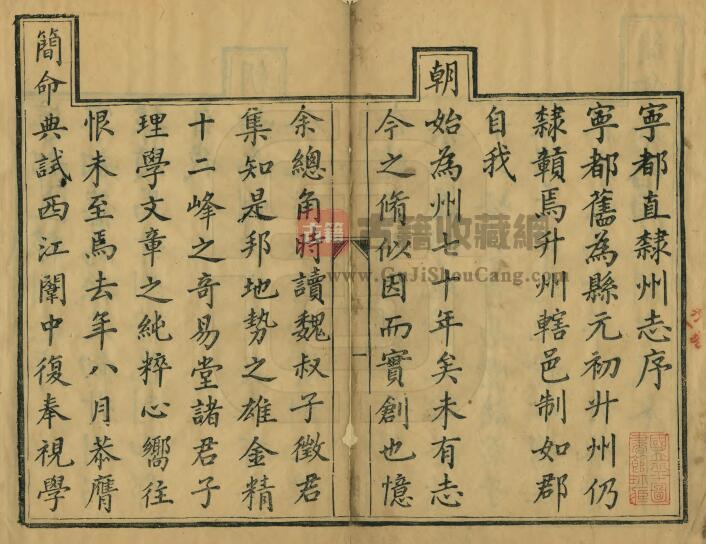 寧都直隸州志序
寧都舊為縣元初廾州仍
隸贛焉升州轄邑制如郡
自我
朝始為州七十年矣未有志
今之脩似因而實創也憶
一
余總角時讀魏叔子徵君
集知是邦地勢之雄金精
十二峰之奇易堂諸君子
理學文章之純粹心嚮往
恨未至焉去年八月恭膺
簡命典試西江闈中復奉視學
古籍
古籍收藏網
www.GuJiShouCang.com